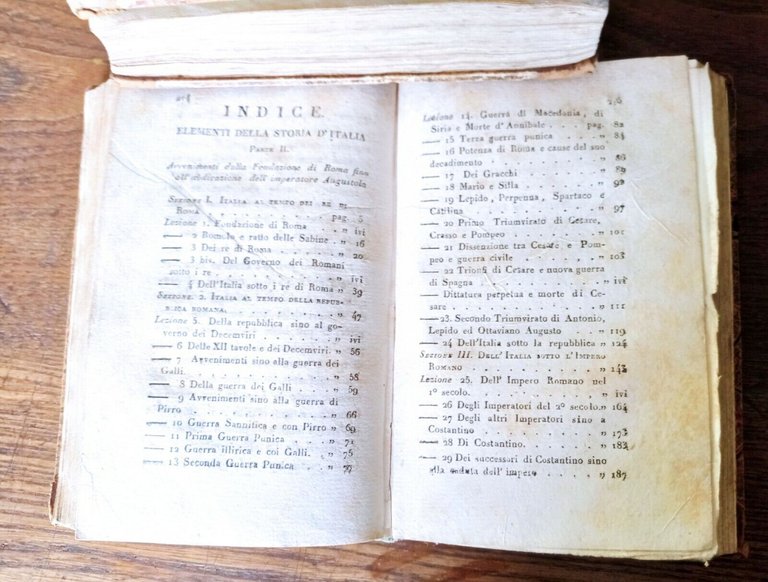 INDICE
ELEMENTI DELLA STORIA D'ITALIA
PARTE II.
Avvenimenti dalla Fondazione di Roma fino
all'abdicazione dell'imperatore Augustolo
SEZIONE I. ITALIA AL TEMPO DEI RE DI
ROMA . . . . . . . . . . pag. 5
Lezione 1. Fondazione di Roma . . . ivi
— 2 Romolo e ratto delle Sabine . „ 16
— 3 Dei re di Roma . . . . . „ 20
— 3 bis. Del Governo dei Romani
sotto i re . . . . . . . . . ivi
— 4 Dell'Italia sotto i re di Roma „ 39
SEZIONE. 2. ITALIA AL TEMPO DELLA REPUB-
BLICA ROMANA. . . . . . . . „ 47
Lezione 5. Della repubblica sino al go-
verno dei Decemviri . . . . . ivi
— 6 Delle XII tavole e dei Decemviri. „ 56
— 7 Avvenimenti sino alla guerra dei
Galli. . . . . . . . . . „ 58
— 8 Della guerra dei Galli . . . „ 59
— 9 Avvenimenti sino alla guerra di
Pirro . . . . . . . . . . „ 66
— 10 Guerra Sannitica e con Pirro „ 69
— 11 Prima Guerra Punica . . . „ 71
— 12 Guerra illirica e coi Galli. . „ 75
— 13 Seconda Guerra Punica . . . „
Lezione 14. Guerra di Macedonia, di
Siria e Morte d'Annibale . . . . pag. 82
— 15 Terza guerra punica . . . „ 84
— 16 Potenza di Roma e cause del suo
decadimento . . . . . . . . „ 86
— 17 Dei Gracchi . . . . . . „ 89
— 18 Mario e Silla . . . . . . „ 92
— 19 Lepido, Perpenna, Spartaco e
Catilina . . . . . . . . . „ 97
— 20 Primo Triumvirato di Cesare,
Crasso e Pompeo . . . . . . „ 101
— 21 Dissenzione tra Cesare e Pom-
peo e guerra civile . . . . . „ 103
— 22 Trionfi di Cezare e nuova guerra
di Spagna . . . . . . . . „ ivi
— Dittatura perpetua e morte di Ce-
sare . . . . . . . . . . „ 111
—23. Secondo Triumvirato di Antonio,
Lepido ed Ottaviano Augusto . . „ 119
— 24 Dell'Italia sotto la repubblica „ 124
SEZIONE III. DELL'ITALIA SOTTO L'IMPERO
ROMANO . . . . . . . . . „ 143
Lezione 25. Dell'Impero Romano nel
1° secolo. . . . . . . . . . ivi
— 26 Degli Imperatori del 2° secolo.„ 164
— 27 Degli altri Imperatori sino a
Costantino . . . . . . . . „ 173
— 28 Di Costantino. . . . . . „ 182
— 29 Dei successori di Costantino sino
alla caduta dell'impero . . . . „ 187